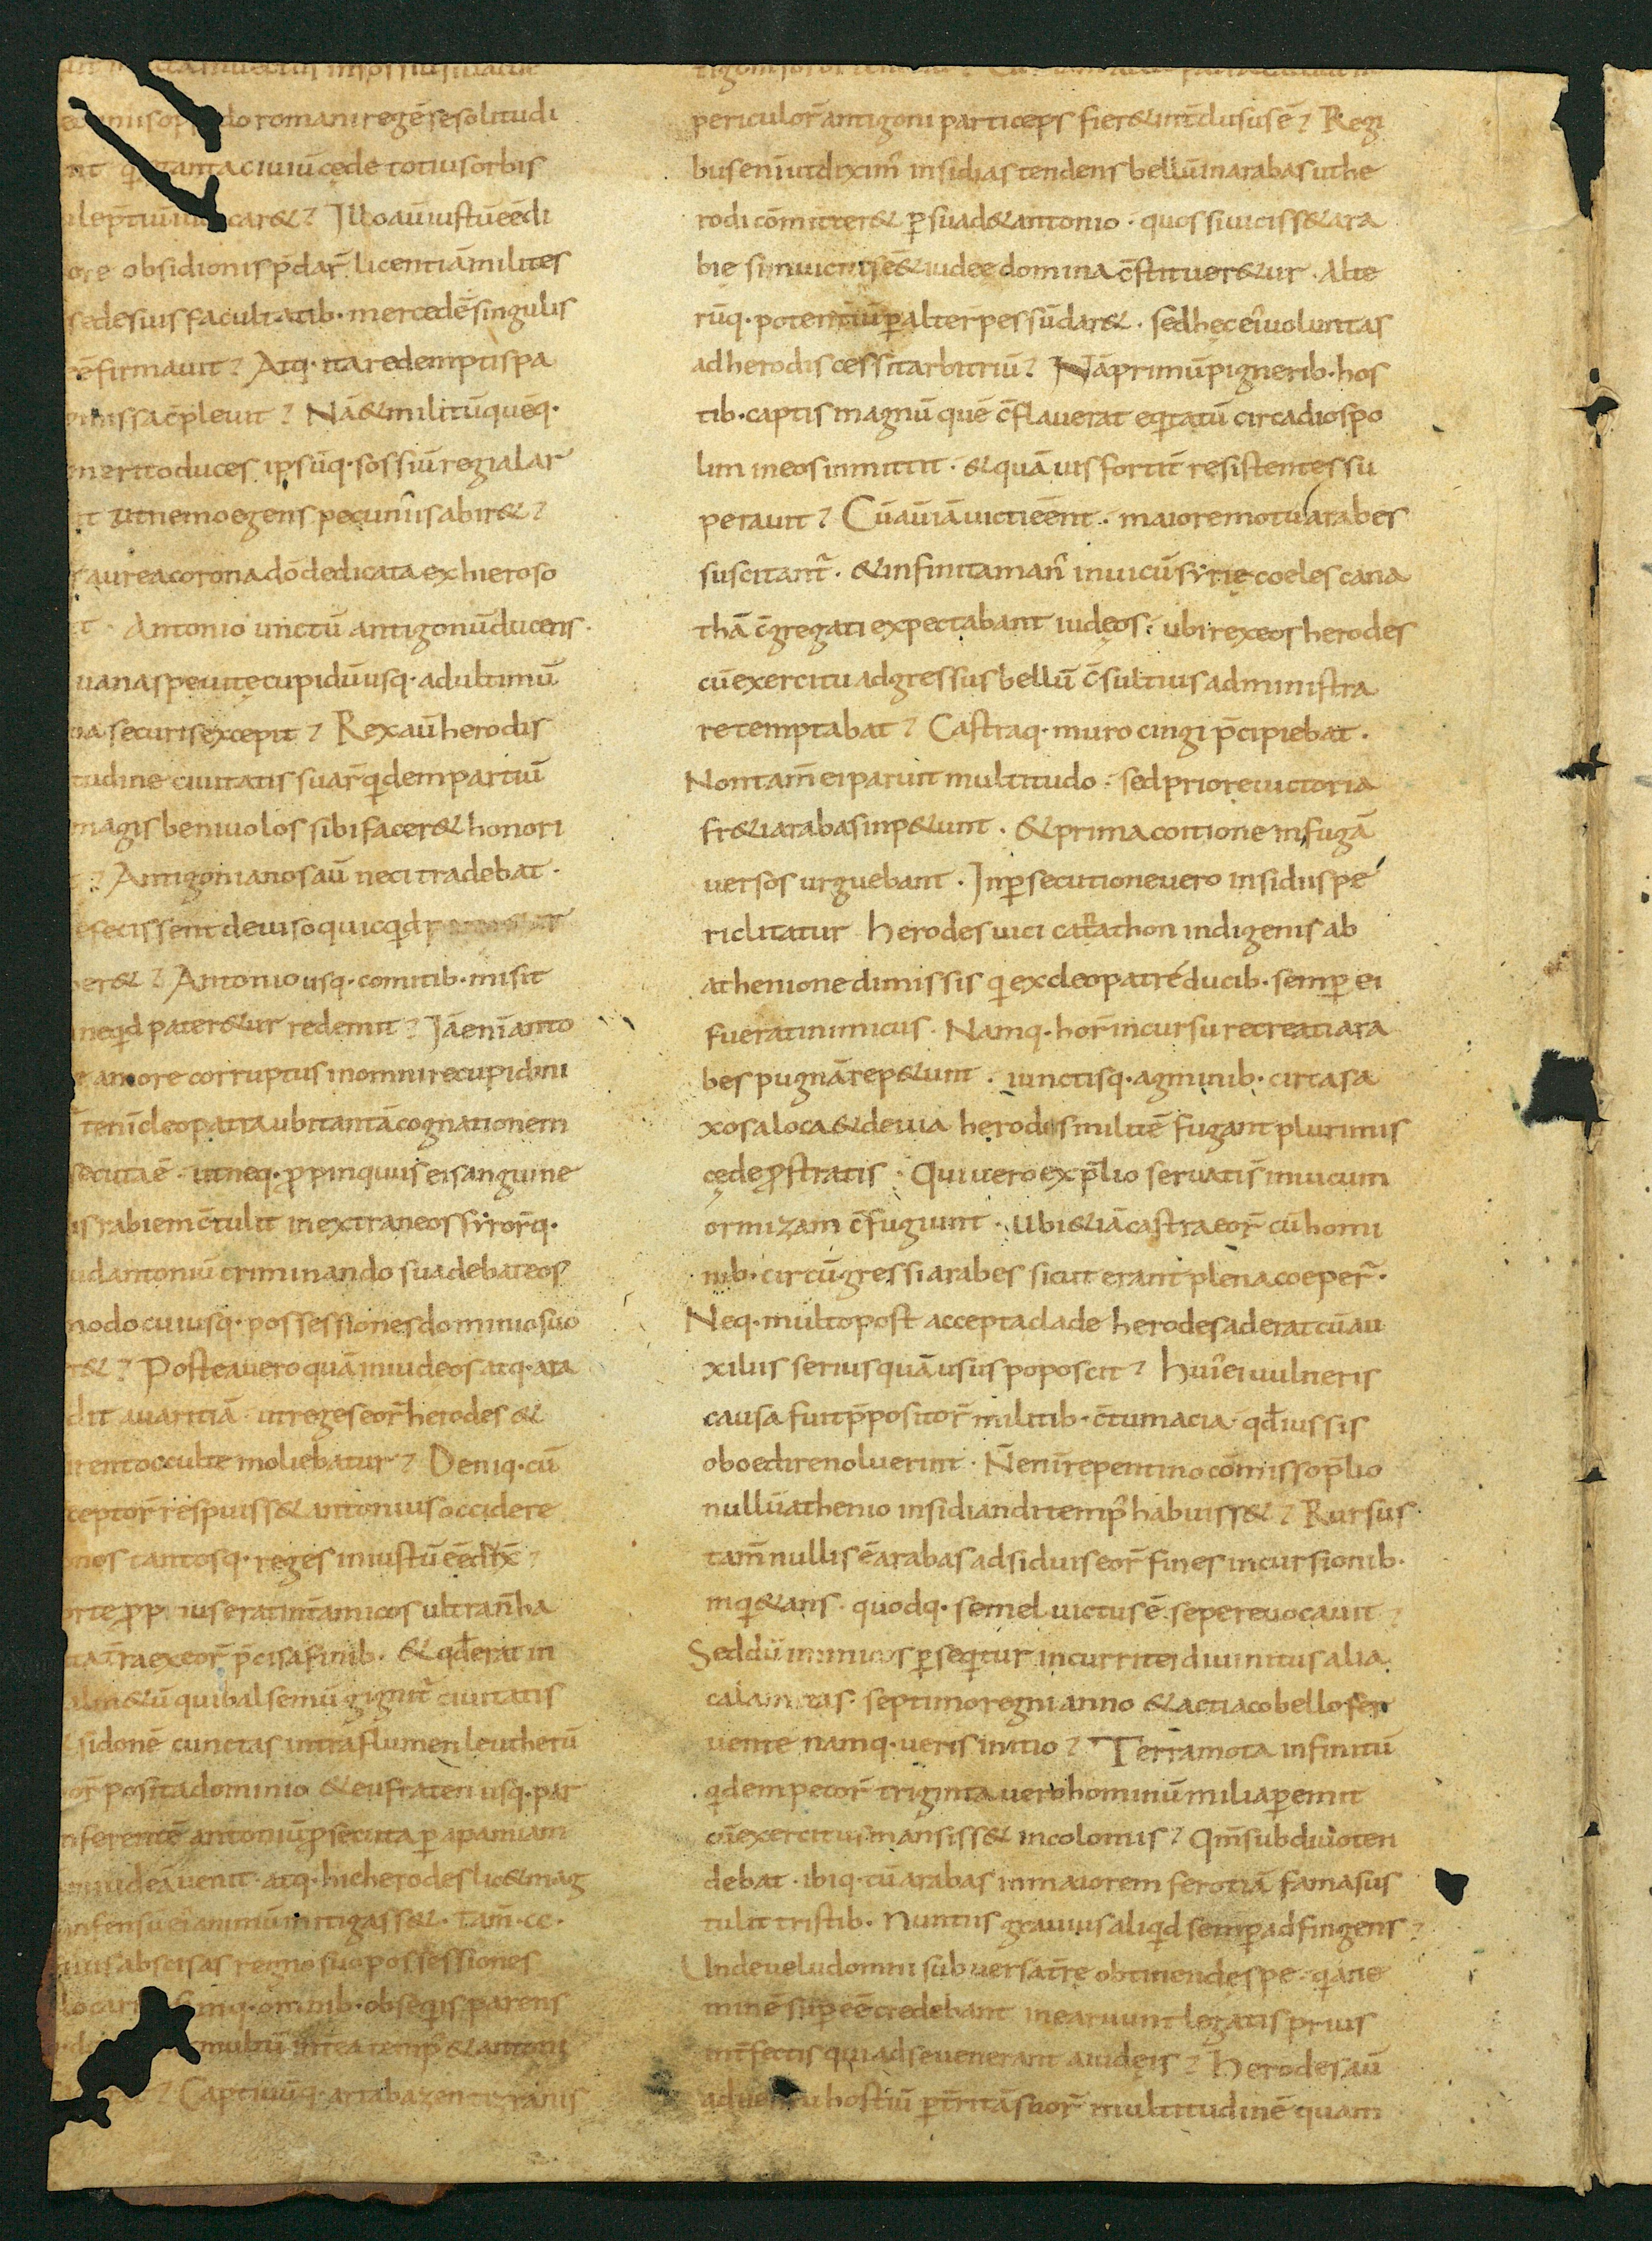 do romani regē se solitudi
tanta ciuiū cęde totius orbis
car&? Illo aū iustū eē di
ore obsidionis p̄dar̄ licentiā milites
se de suis facultatib· mercedē singulis
firmauit? Atq· ita redemptis pa
c̄pleuit? Nā & militū quēq·
merito duces ipsūq· sossiū regia lar
ut nemo egens pecuniis abir&?
aurea corona dō dedicata ex hieroso
Antonio uinctū antigonū ducens·
uana spe uitę cupidū usq· ad ultimū
securis excepit? Rex aū herodis
tudine ciuitatis suar̄ qdem partiū
magis beniuolos sibi facer& honori
? Antigonianos aū neci tradebat·
fecissent deuiso quicqd
er&? Antonio usq· comitib· misit
ne qd pater&ur redemit? Iā enī anto
amore corruptus in omni re cupidini
enī cleopatra ubi tantā cognationem
secuta ē· ut neq· ꝓpinquus ei sanguine
rabiem c̄tulit in extraneos syrorq·
ud antoniū criminando suadebat eos
modo cuiusq· possessiones dominio suo
r&? Postea uero quā in iudeos atq· ara
dit auaritiā· ut reges eor̄ herodes &
rent occulte moliebatur? Deniq· cū
ceptor̄ respuiss& antonius occidere
nos tantosq· reges iniustū eē dix̄?
ius erat int̄ amicos
ex eor̄ p̄cisa finib· & qd̄ erat in
&ū qui balsemū gignit̄ ciuitatis
sidonē cunctas intra flumen leutherū
or̄ posita dominio & eufraten usq· par
nferentē antoniū ꝓsecuta ꝑ apamiam
iudeā uenit· atq· hic herodes lic& mag
infensū ei animū mitigass&· tam̄ ·cc·
abscisas regno suo possessiones
q· omnib· obsequis parens
multū int̄ea temp̄ & antonii
? Captiuūq· artabazen tigranis
periculor̄ antigoni particeps fier& int̄dusus ē? Regi
bus enī ut diximꝰ insidias tendens bellū in arabas ut he
rodi cōmitter& ꝑsuad& antonio· quos si uiciss& ara
bię si in uictus eē& iudeę domina c̄stituer&ur· Alte
rūq· potentiū ꝑ alter pessū dar&· sed hęc ei uoluntas
ad herodis cessit arbitriū? Nā primū pignerib· hos
tib· captis magnū quē c̄flauerat eqtatū circa diospo
lim in eos inmittit· & quāuis fortit̄ resistentes su
perauit? Cū aū iā uicti eēnt· maiore motu arabes
suscitant̄· & infinita manꝰ in uicū syrię coeles cana
thā c̄gregati expectabant iudęos· ubi rex eos herodes
cū exercitu adgressus bellū c̄sultius administra
re temptabat? Castraq· muro cingi p̄cipiebat·
Non tam̄ ei paruit multitudo· sed priore uictoria
fr&i arabas inp&unt· & prima coitione in fugā
uersos urguebant· In ꝑsecutione uero insidiis pe
riclitatur herodes uici carathon indigenis ab
athenione dimissis q ex cleopatrę ducib· semꝑ ei
fuerat inimicus· Namq· hor̄ incursu recreati ara
bes pugnā rep&unt· iunctisq· agminib· circa sa
xosa loca & deuia herodis militē fugant plurimis
cęde ꝓstratis· Qui uero ex p̄lio seruati s̄ in uicum
ormizam c̄fugiunt· ubi &iā castra eor̄ cū homi
nib· circūgressi arabes sicut erant plena coeper̄·
Neq· multo post accepta clade herodes aderat cū au
xiliis serius quā usus poposcit? Huiꝰ ei uulneris
causa fuit p̄positor̄ militib· c̄tumacia· qd̄ iussis
oboedire noluerint· N̄ enī repentino cōmisso p̄lio
nullū athenio insidiandi tempꝰ habuiss&? Rursus
tam̄ nullis ē arabas adsiduis eor̄ fines incursionib·
inq&ans· quodq· semel uictus ē sepe reuocauit?
Sed dū inimicos ꝑseqtur incurrit ei diuinitus alia
calamitas· septimo regni anno & actiaco bello fer
uente namq· ueris initio? Terra mota infinitū
qdem pecor̄ triginta uero hominū milia ꝑemit
cū exercitus mansiss& incolomis? Qm̄ sub diuo ten
debat· ibiq· tū arabas in maiorem ferotiā fama sus
tulit tristib· nuntiis grauius aliqd semꝑ adfingens?
Unde uelud omni subuersa t̄re obtinendę spe· q ane
minē suꝑeē credebant in ea ruunt legatis prius
int̄fectis qui ad se uenerant a iudęis? Herodes aū
aduentu hostiū ꝑt̄ritā suor̄ multitudinē quam